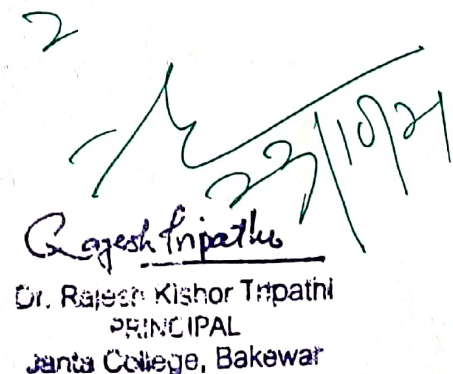 2
23/10/21
Rajesh Tripathi
Dr. Rajesh Kishor Tripathi
PRINCIPAL
Janta College, Bakewar